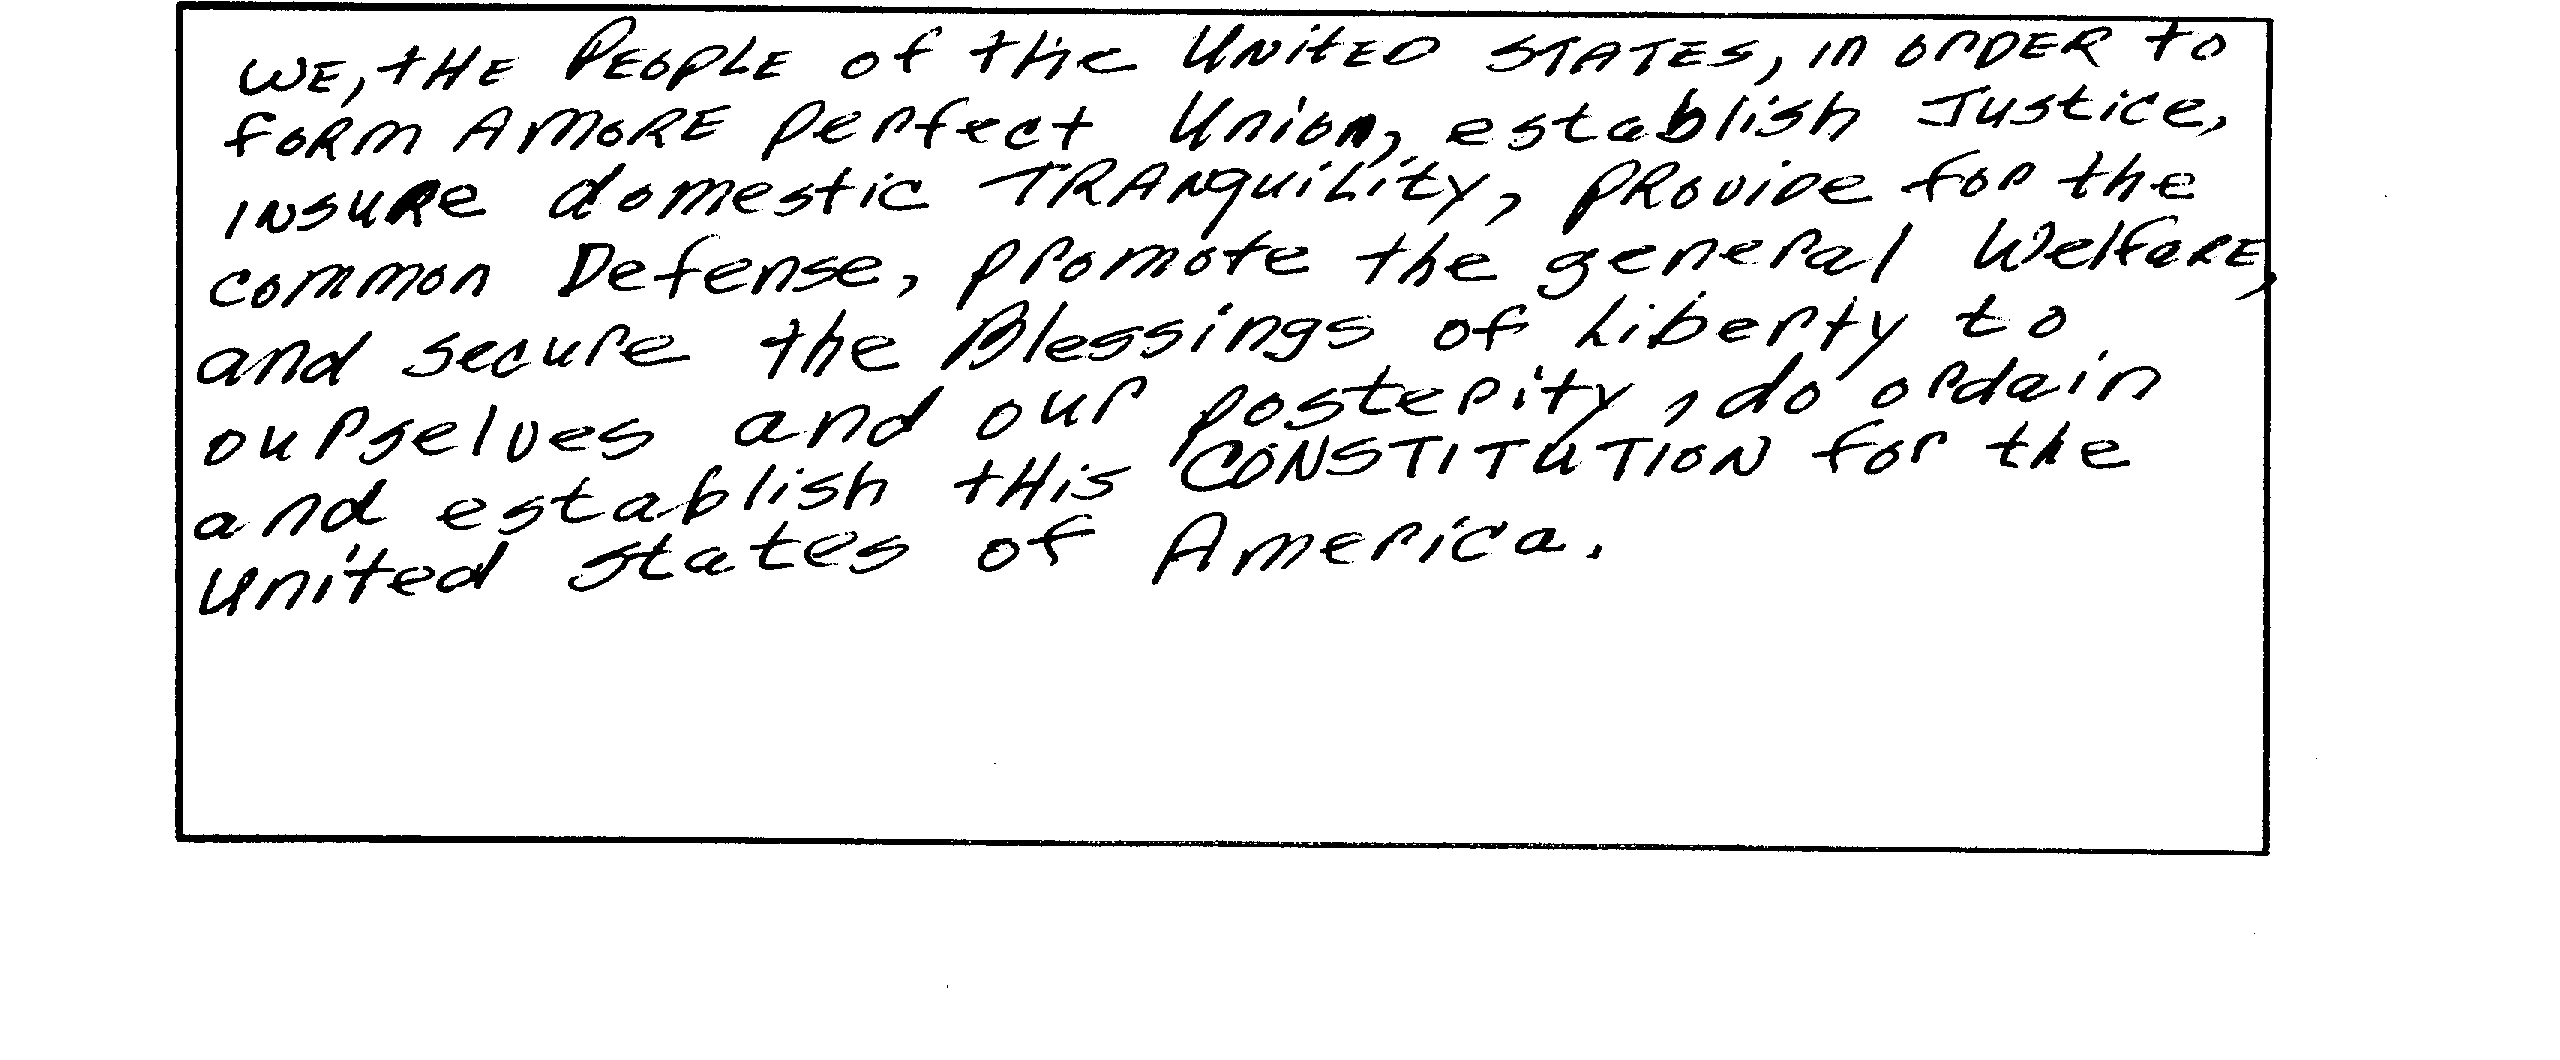 WE, tHE PEOPLE of the UNitED STATES, in orDER to
foRm A moRE perfect Union, establish Justice,
INSURe domestic TRANquiLity, PRoviDe for the
common Defense, promote the general WelfaRE,
and secure the Blessings of Liberty to
ourselves and our posterity, do ordain
and establish tHis CONSTITUTION for the
United states of America.